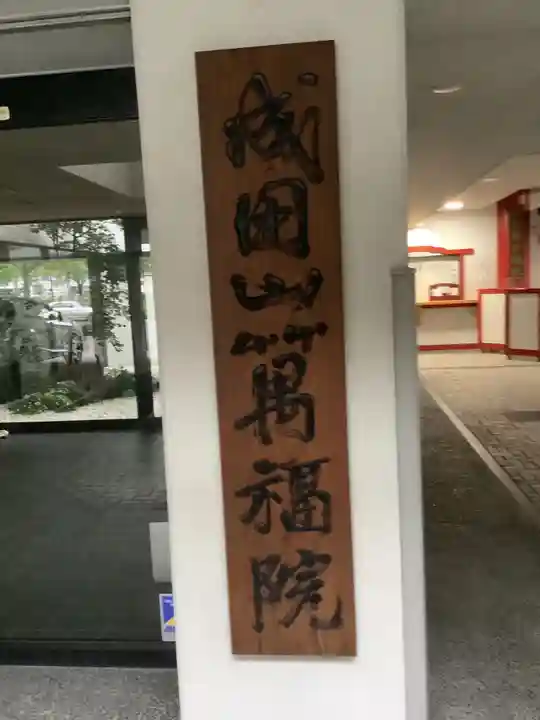 成田山萬福院